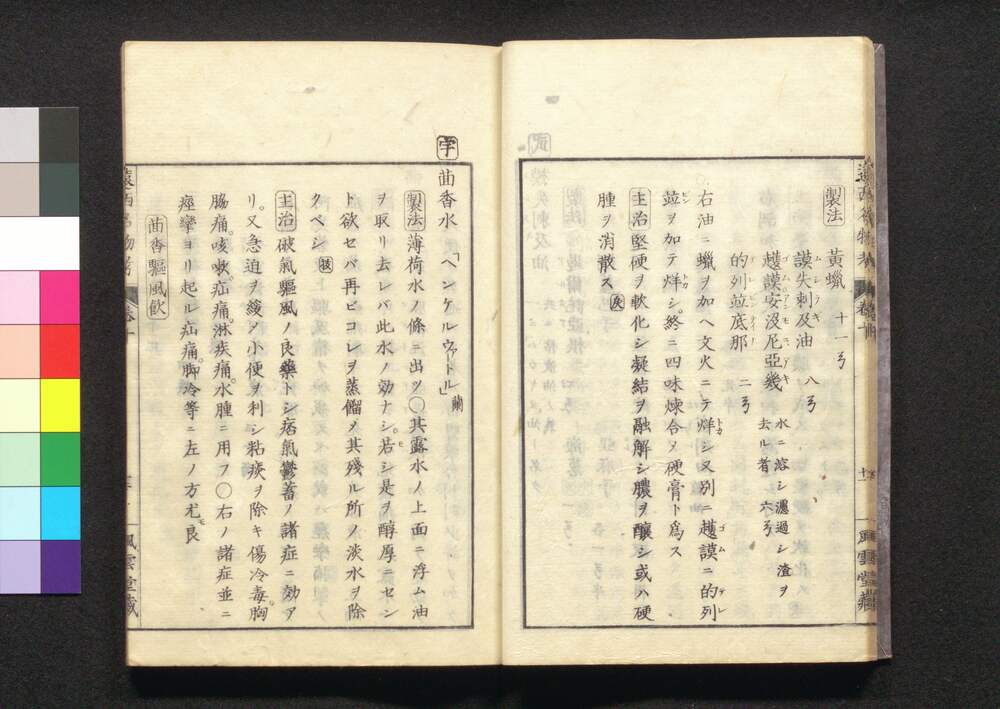 製法 黄蠟 十一弓
謨失刺及油 八弓
ムシラキ
護謨安没尼亞幾 水ニ溶シ濾過シ渣ヲ去ル者 六弓
ゴムアモニアキ
的列並底那 二弓
右油ニ蠟ヲ加ヘ文火ニテ烊シ又別ニ護謨ニ的列
並ヲ加テ烊シ終ニ四味煉合メ硬膏ト爲ス
主治堅硬ヲ軟化シ凝結ヲ融解シ膿ヲ釀シ或ハ硬
腫ヲ消散ス
遠西
十一
風雲堂藏
宇 茴香水「ヘンケルウァートル」蘭
製法薄荷水ノ條ニ出ツ〇其露水ノ上面ニ浮ム油
ヲ取リ去レバ此水ノ効ナシ若シ是ヲ醇厚ニセン
ト欲セバ再ビコレヲ蒸餾メ其殘ル所ノ淡水ヲ除
クベシ 扱
主治破氣驅風ノ良藥トシ痞氣鬱蓄ノ諸症ニ効ア
リ又急迫ヲ緩メ小便ヲ利シ粘痰ヲ除キ傷冷毒胸
脇痛咳嗽疝痛淋疾痛水腫ニ用フ〇右ノ諸症並ニ
痙攣ヨリ起ル疝痛脚冷等ニ左ノ方尤良
茴香驅風飲
風雲堂藏